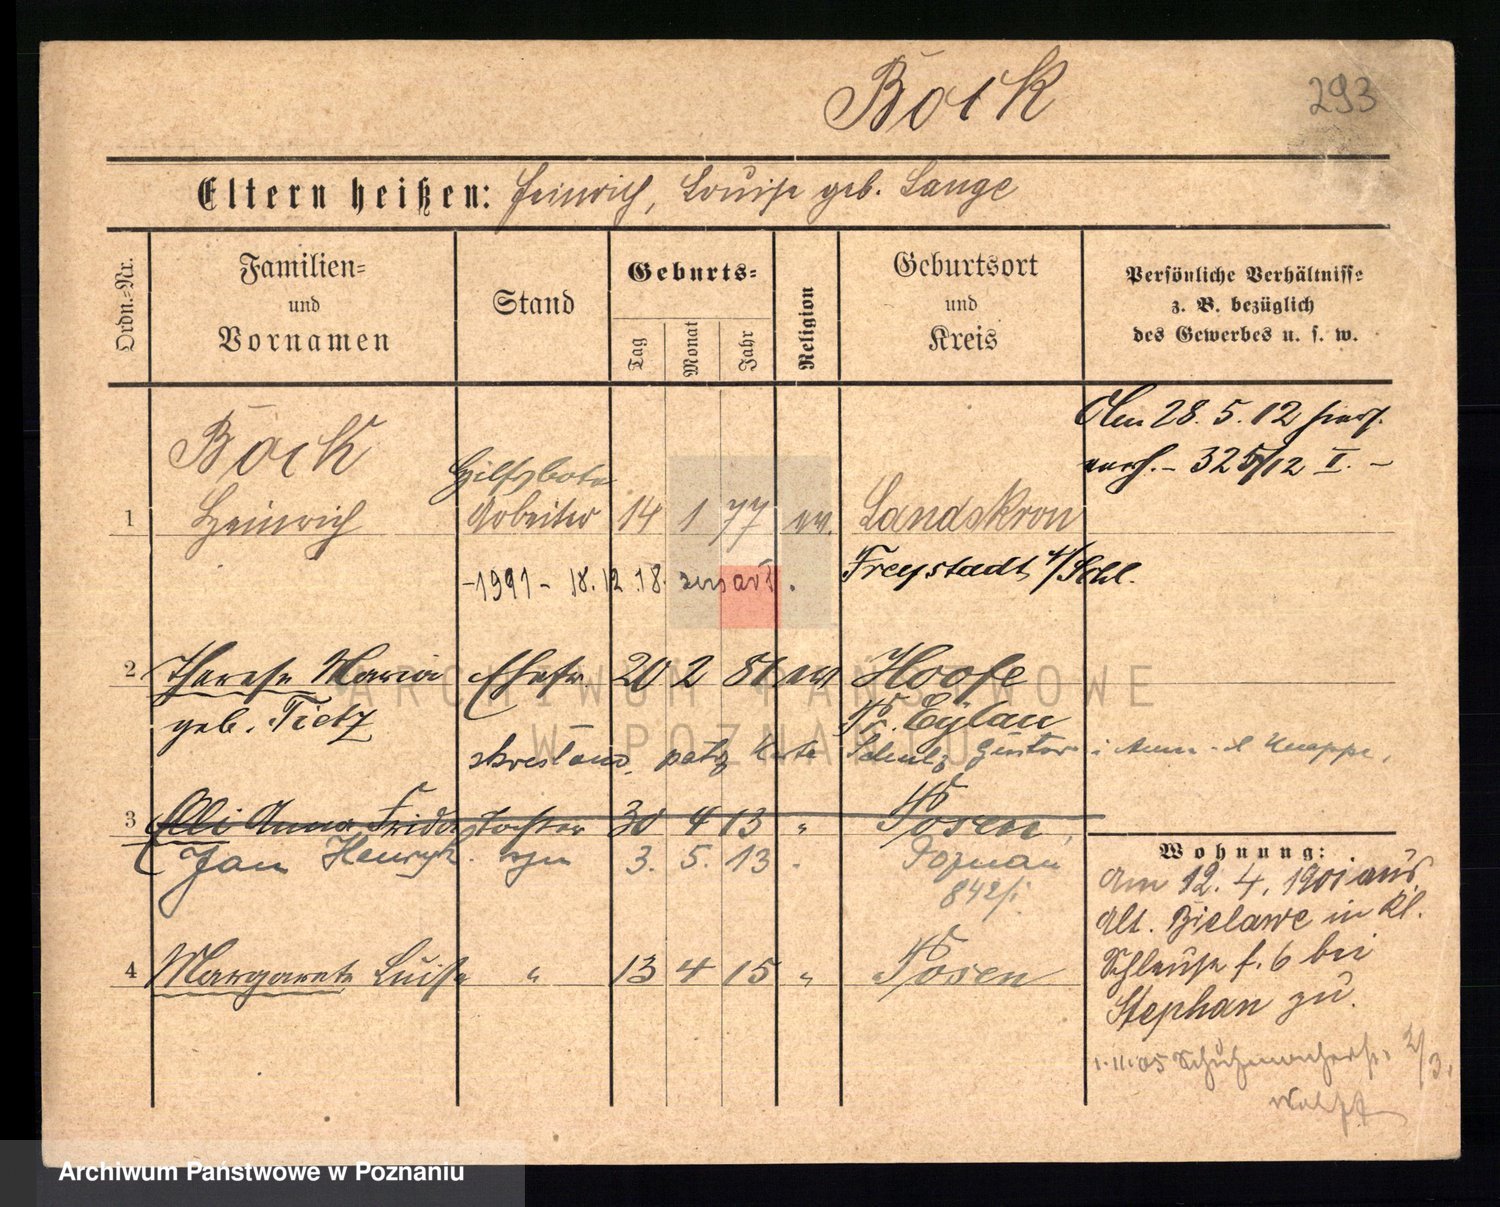 Böck
293
Eltern heißen: Heinrich, Louise geb. Lange
Ordn.=Nr.
Familien=
und
Vornamen
Stand
Geburts=
Tag
Monat
Jahr
Religion
Geburtsort
und
Kreis
Persönliche Verhältnisse
z. B. bezüglich
des Gewerbes u. s. w.
Am 28. 5. 12 hier
verh. - 325/12 I. -
Böck
Hilfsbote
1 Heinrich Arbeiter 14 1 77 ev. Landskron
Freystadt N/Schl.
-1991- 18.12.18.
2 Therese Maria Ehefr 20 2 81 ev Hoofe
geb. Tietz Kr. Eylau
Karte Schulz Gustav i Knappe,
3 Elli Anna Frida Tochter 30 4 13 " Posen
Jan Henryk syn 3. 5. 13 Poznań
842/i
4 Margarete Luise " 13 4 15 " Posen
Wohnung:
Am 12. 4. 1901 aus
Alt. Bielawe in Kl.
Schleuse f. 6 bei
Stephan zu.
1.11.05 2/3.
ARCHIWUM PAŃSTWOWE
W POZNANIU
Archiwum Państwowe w Poznaniu